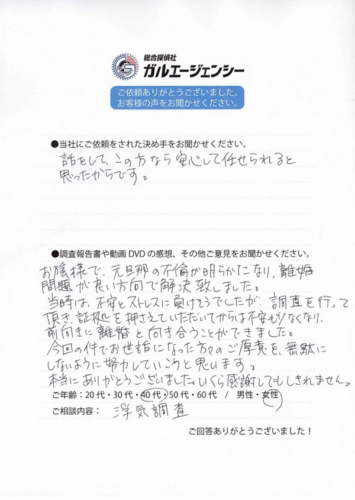 総合探偵社
ガルエージェンシー
ご依頼ありがとうございました。
お客様の声をお聞かせください。
●当社にご依頼をされた決め手をお聞かせください。
話をして、この方なら安心して任せられると
思ったからです。
●調査報告書や動画DVDの感想、その他ご意見をお聞かせください。
お陰様で、元旦那の不倫が明らかになり、離婚
問題が良い方向で解決致しました。
当時は、不安とストレスに負けそうでしたが、調査を行って
頂き、証拠を押さえていただいてからは不安もなくなり、
前向きに離婚と向き合うことができました。
今回の件でお世話になった方々のご厚意を、無駄に
しないように努力していこうと思います。
本当にありがとうございました。いくら感謝してもしきれません。
ご年齢:20代・30代・40代・50代・60代 / 男性・女性
ご相談内容: 浮気調査
ご回答ありがとうございました!